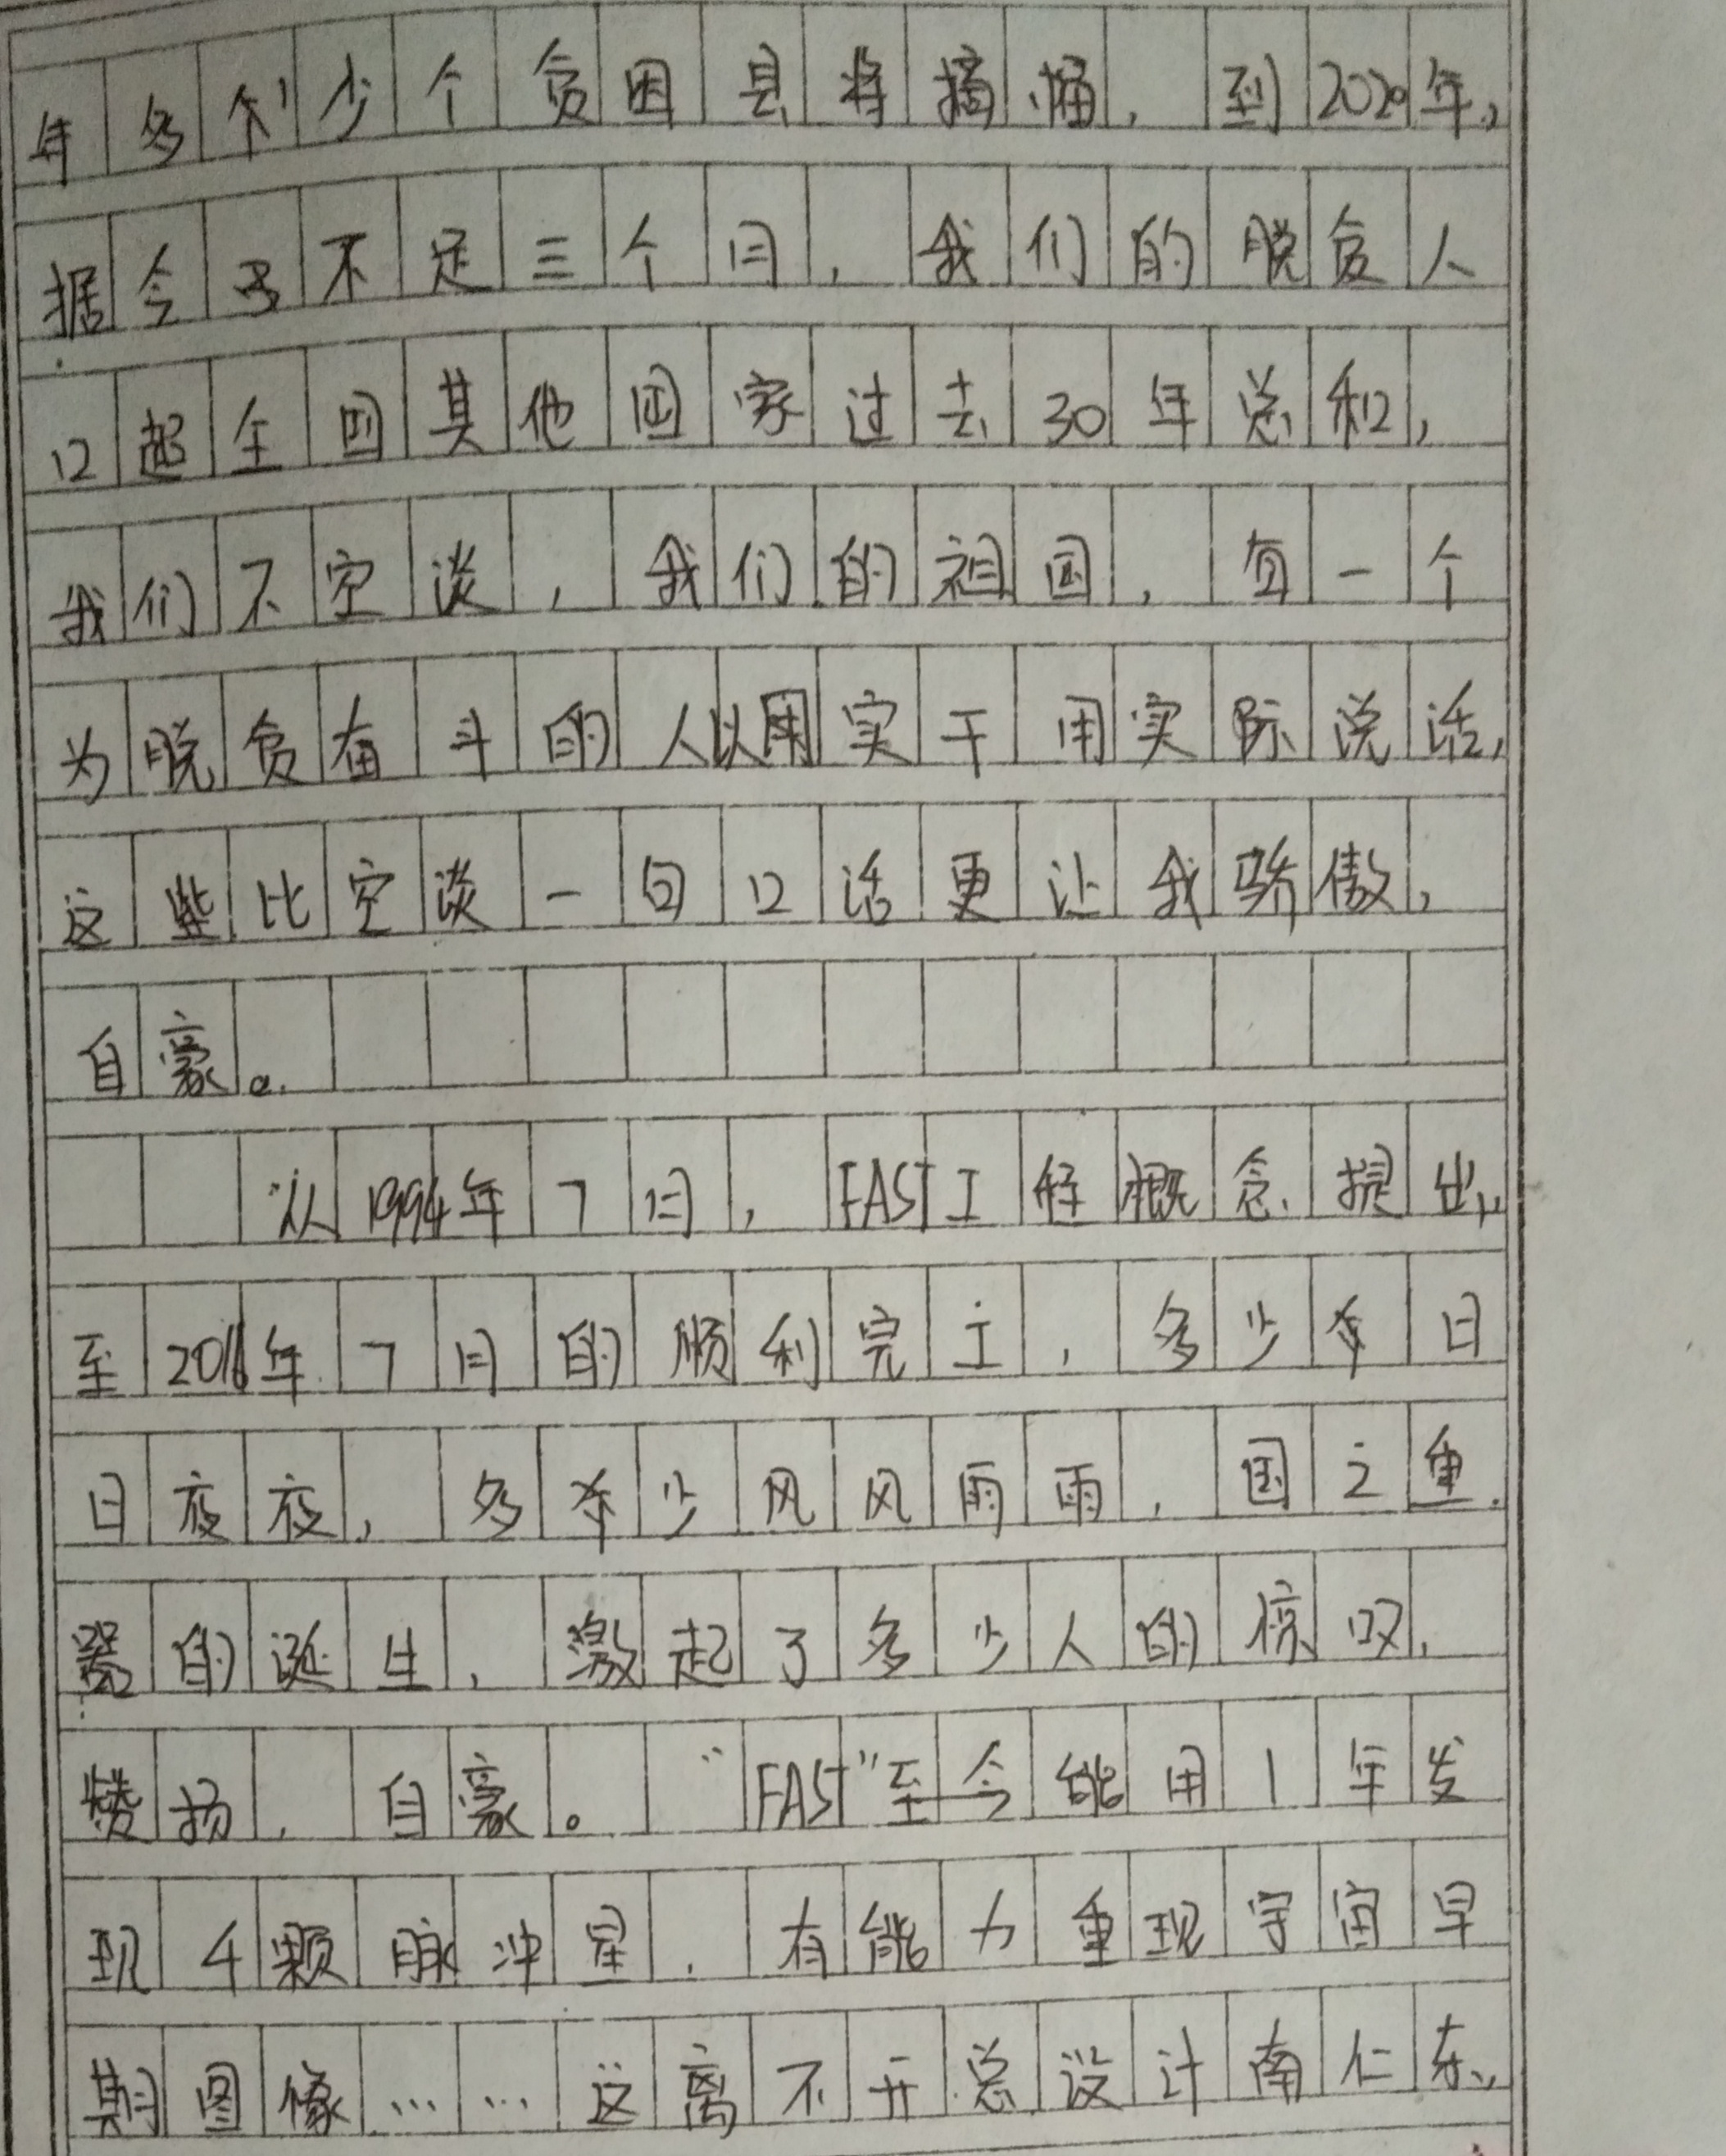 年多少个贫困县将摘帽，到2020年，
据今不足三个月，我们的脱贫人
口起全国其他国家过去30年总和，
我们不空谈，我们的祖国，每一个
为脱贫奋斗的人以用实干用实际说话，
这些比空谈一句口话更让我骄傲，
自豪。
从1994年7月，FAST工程概念提出，
至2016年7月的顺利完工，多少个日
日夜夜，多少风风雨雨，国之重
器的诞生，激起了多少人的惊叹，
赞扬，自豪。"FAST"至今能用1年发
现4颗脉冲星，有能力重现宇宙早
期图像……这离不开总设计南仁东，